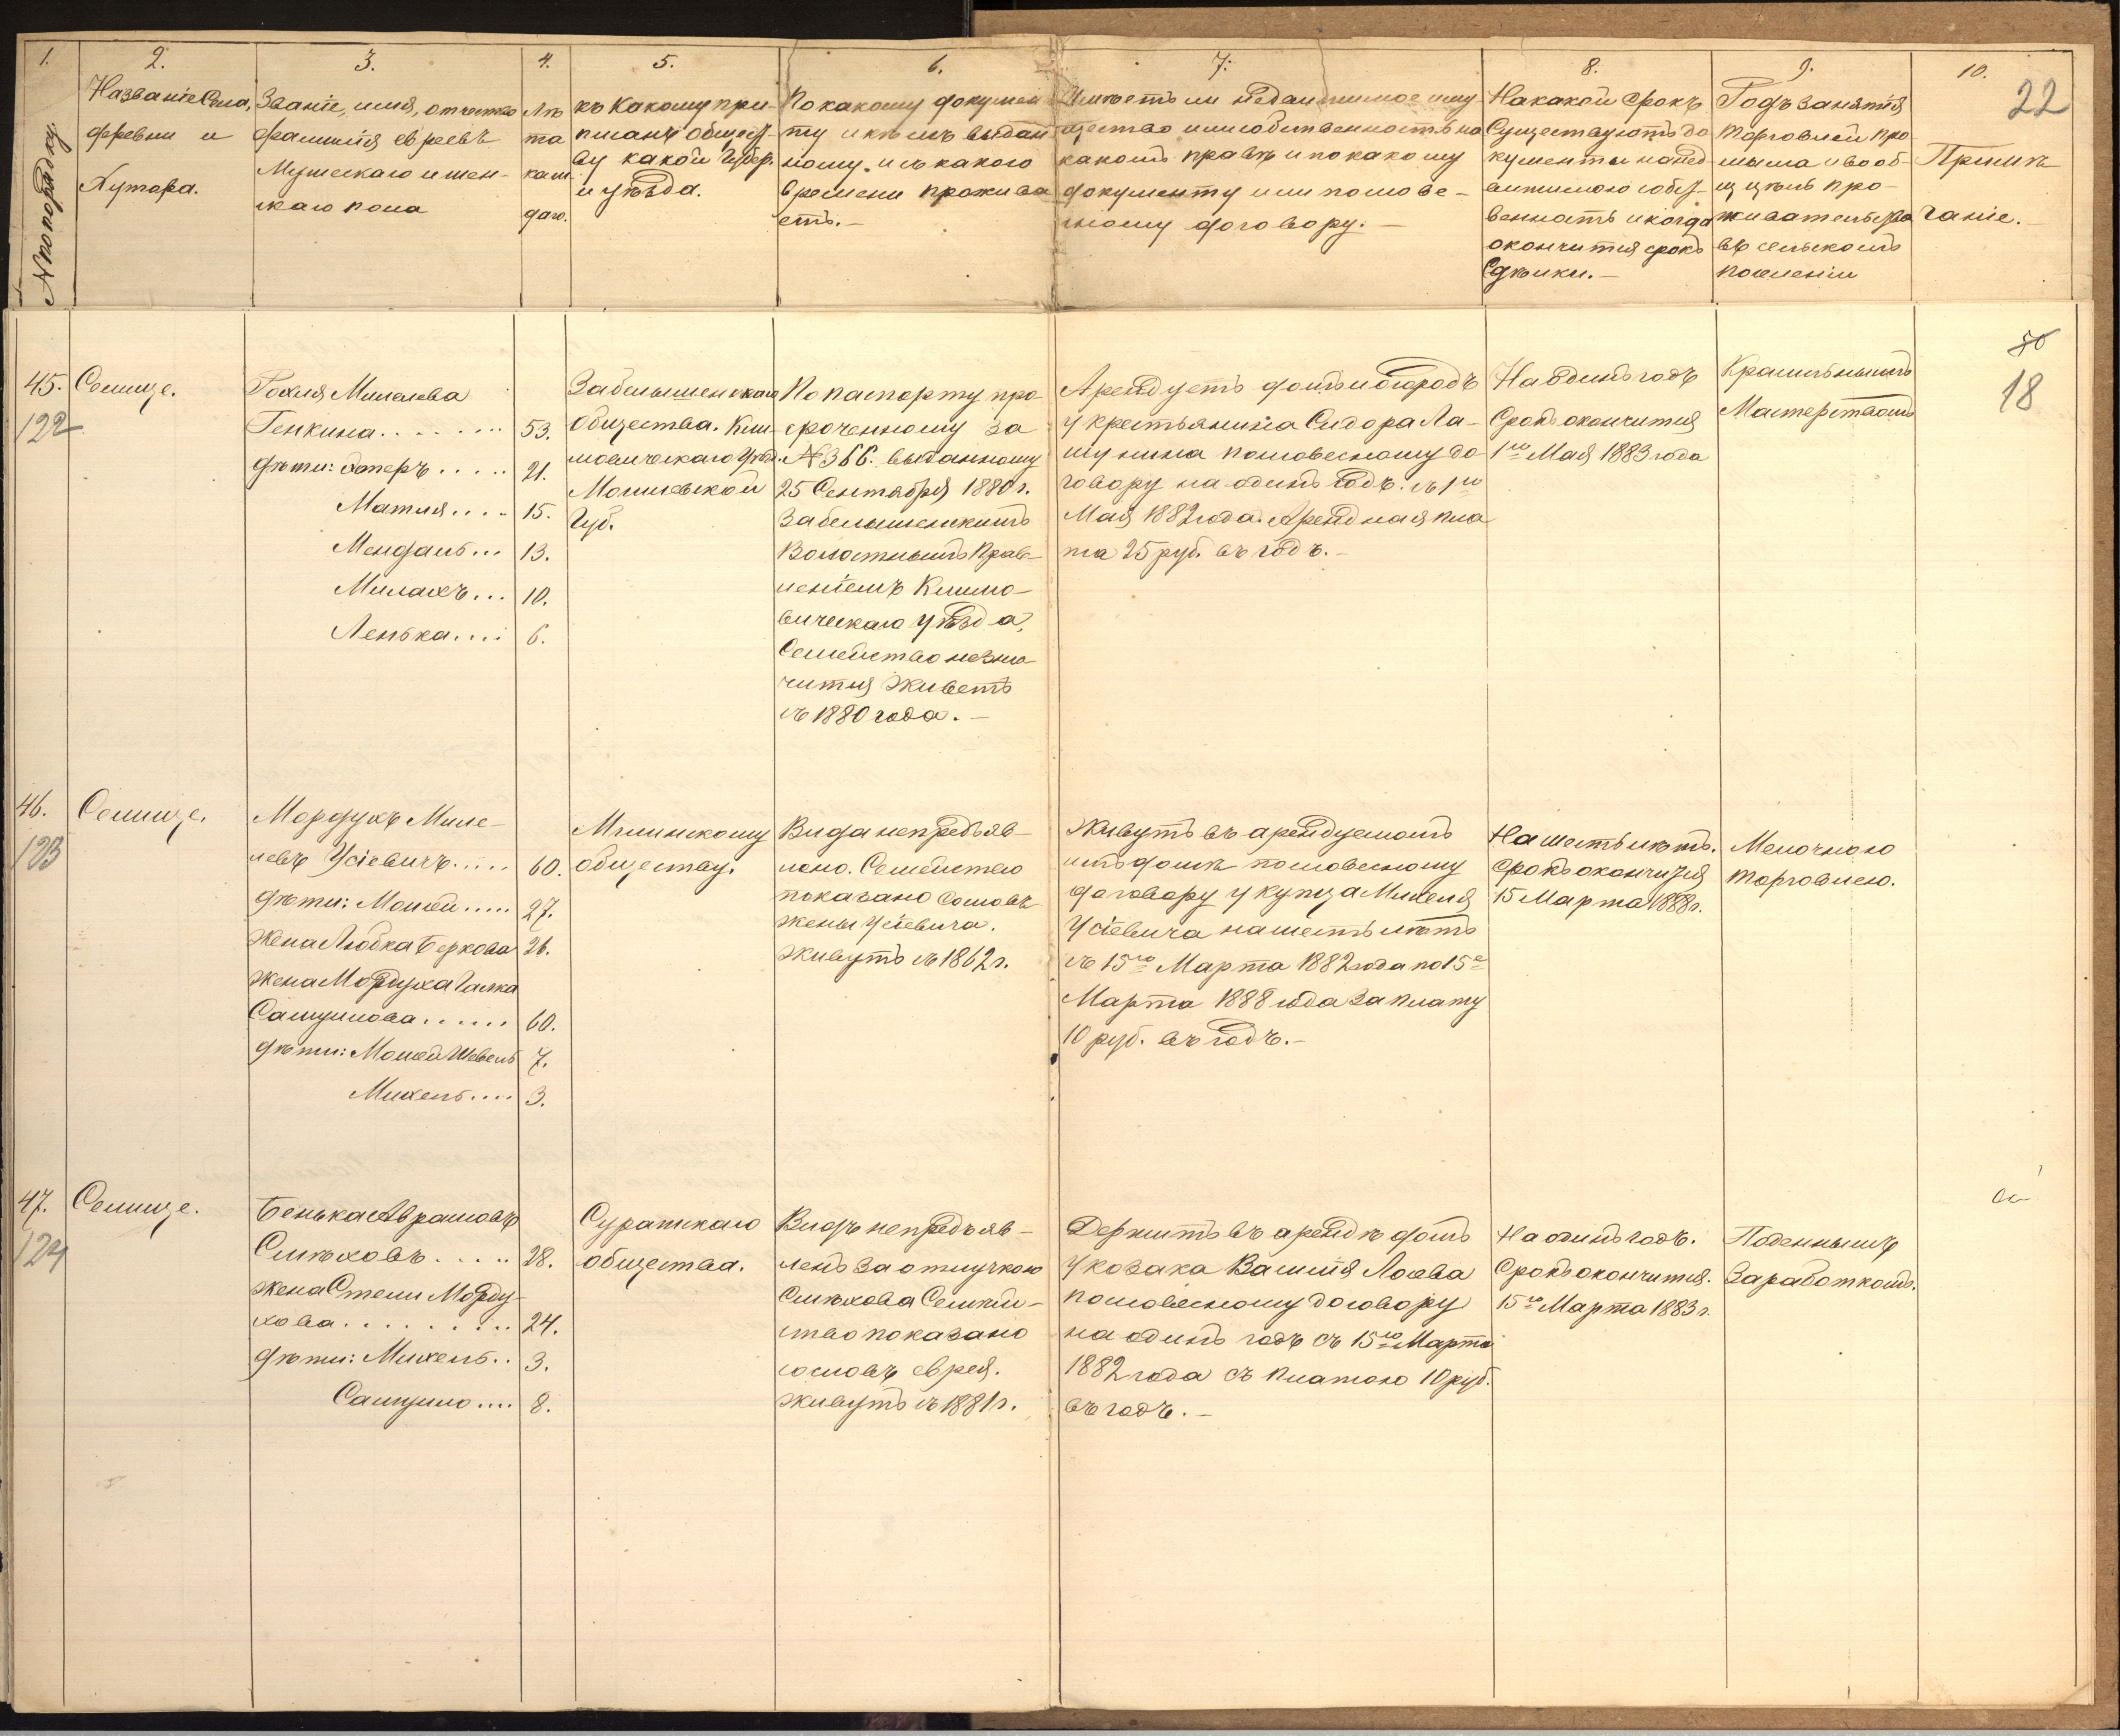 1. 2. 3. 4. 5. 6. 7. 8. 9. 10.
22
№ по порядку.
Названіе Села,
деревни и
Хутора.
Званіе, имя, отчество
фамилія евреевъ
Мужескаго и жен-
скаго пола
Лѣ
та
каж
даго.
къ Какому при-
писанъ общест-
ву какой Губер.
и уѣзда.
По какому докумен
ту и кѣмъ выдан
ному. и съ какого
времени прожива
етъ.-
Имѣетъ ли недвижимое иму
щество или собственность на
какомъ правѣ и по какому
документу или слове-
сному договору.-
На какой срокъ
Существуютъ до
кументы на нед
вижимою собст-
венность и когда
окончится срокъ
Сдѣлки.-
Родъ занятія
торговлей про
мысла и вооб-
ще цѣль про-
живательства
въ сельскомъ
поселеніи
Примѣ
чаніе.
50
18
45.
122
Селище.
Генкина........ 53.
дѣти: Эстеръ..... 21.
Матля.... 15.
Мендаль... 13.
10.
Ленька.... 6.
Забелышенскаго
общества. Кли-
мовическаго Уѣзд.
Могилевской
Губ.
По паспорту про-
сроченному за
№ 366. выданному
25 Сентября 1880 г.
Забелышенскимъ
Волостнымъ Прав-
леніемъ Климо-
вическаго уѣзда,
Семейство не зна-
чится живетъ
съ 1880 года.-
Арендуетъ домъ и огородъ
у крестьянина Сидора Ла-
шунина по словесному до
говору на одинъ годъ. съ 1го
Мая 1882 года. Арендная пла
та 25 руб. въ годъ.-
На Одинъ годъ
Срокъ окончится
1го Мая 1883 года
Красильнымъ
Мастерствомъ
46.
123
Селище.
Мордухъ Миле-
левъ Усіевичъ..... 60.
дѣти: Мовшей..... 27.
Жена Любка Беркова 26.
Жена Мордуха Галка
Самуилова...... 60.
дѣти: Мовшей Шевель 7.
Михель.... 3.
Мглинскому
обществу.
Вида не предъяв-
лено. Семейство
показано со словъ
жены Усіевича.
Живутъ съ 1862 г.
Живутъ въ арендуемомъ
имъ домѣ по словесному
договору у купца Михеля
Усіевича на шесть лѣтъ
съ 15го Марта 1882 года по 15е
Марта 1888 года за плату
10 руб. въ годъ.-
На шесть лѣтъ.
Срокъ окончится
15 Марта 1888 г.
Мелочною
торговлею.
47.
124
Селище.
Бенька Аврамовъ
Смѣховъ..... 28.
Жена Стеси Морду-
хова.......... 24.
дѣти: Михель.. 3.
Самуило.... 8.
Суражскаго
общества.
Видъ не предъяв-
ленъ за отлучкою
Смѣхова Семей-
ство показано
со словъ еврея.
Живутъ съ 1881 г.
Держитъ въ арендѣ домъ
у козака Василія Лосева
по словесному договору
на одинъ годъ съ 15го Марта
1882 года съ платою 10 руб.
въ годъ.-
На одинъ годъ.
Срокъ окончится.
15го Марта 1883 г.
Поденнымъ
Заработкомъ.